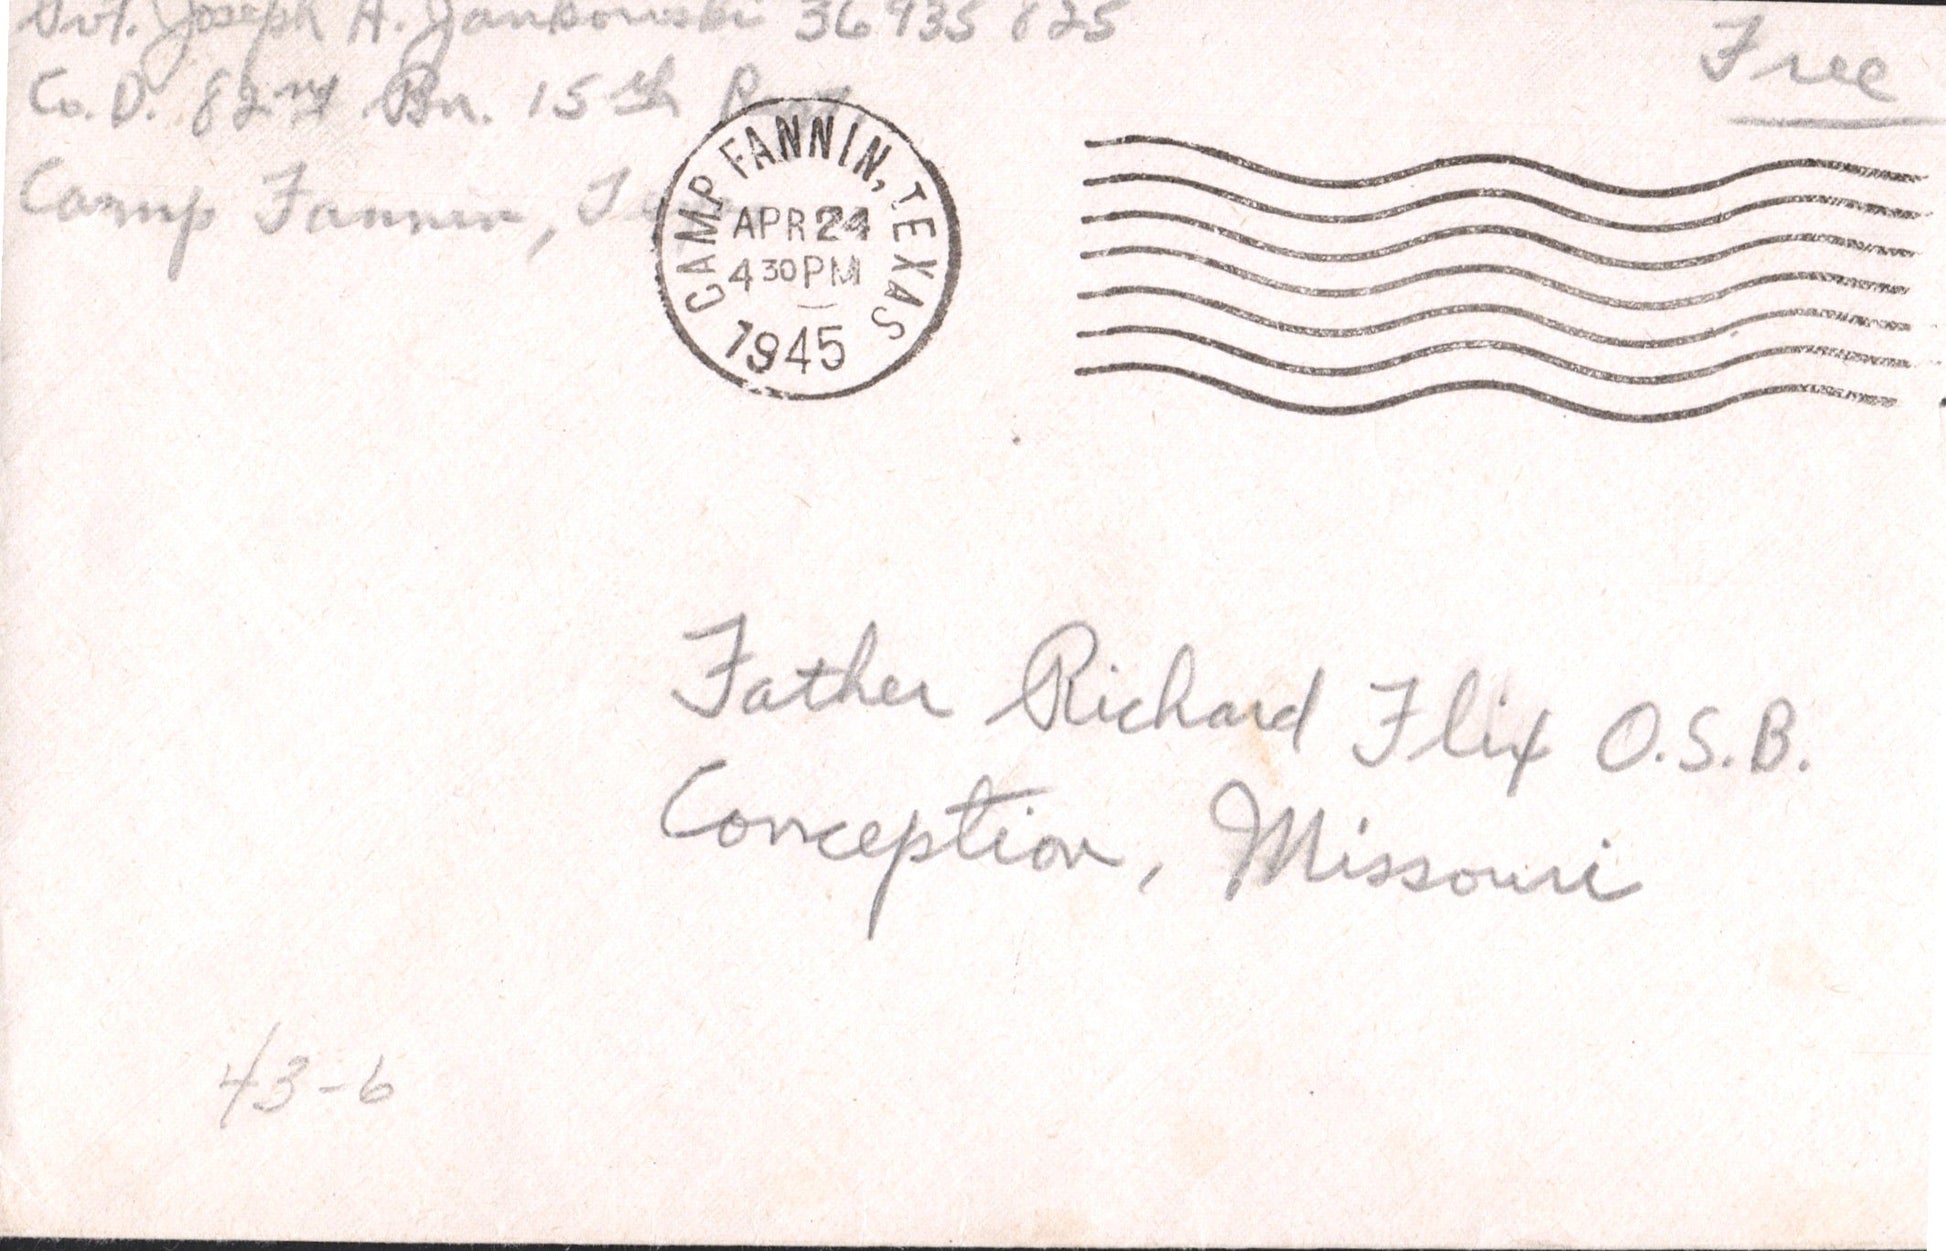 Pvt. Joseph A. Jankowski 36 935 825
Free
Co. D. 82nd Bn. 15th Regt
Camp Fannin, Tex
CAMP FANNIN, TEXAS
APR 24
4 30 PM
1945
Father Richard Flix O.S.B.
Conception, Missouri
43-6